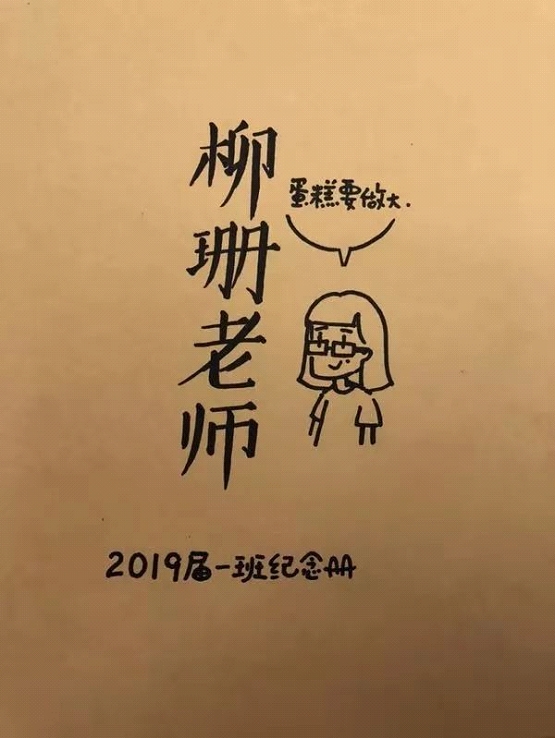 柳珊老师
蛋糕要做大.
2019届一班纪念册